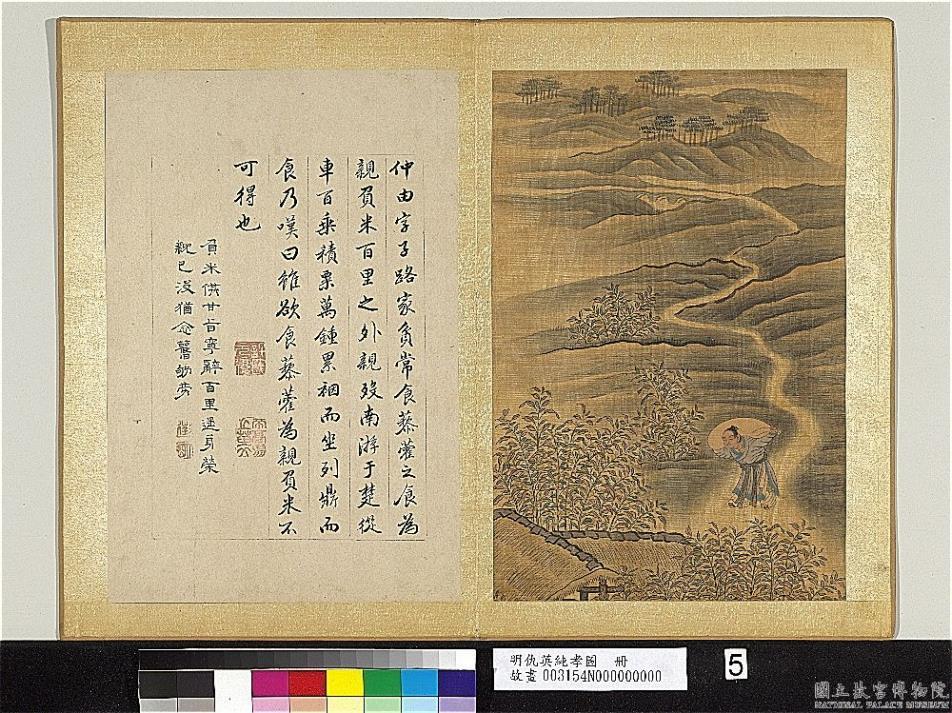 仲由字子路家貧常食藜藿之食為
親負米百里之外親歿南游于楚從
車百乘積粟萬鍾累裀而坐列鼎而
食乃嘆曰雖欲食藜藿為親負米不
可得也
負米供甘旨寧辭百里遙身榮
親已沒猶念舊劬勞
明仇英純孝圖 冊
故畫 003154N000000000
5
國立故宮博物院
NATIONAL PALACE MUSEUM